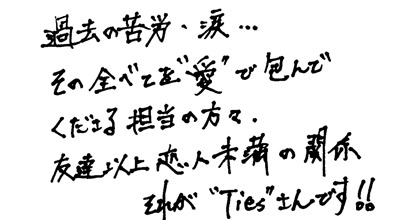 過去の苦労、涙…
その全べてを"愛"で包んで
くださる担当の方々.
友達以上恋人未満の関係
それが"Ties"さんです!!